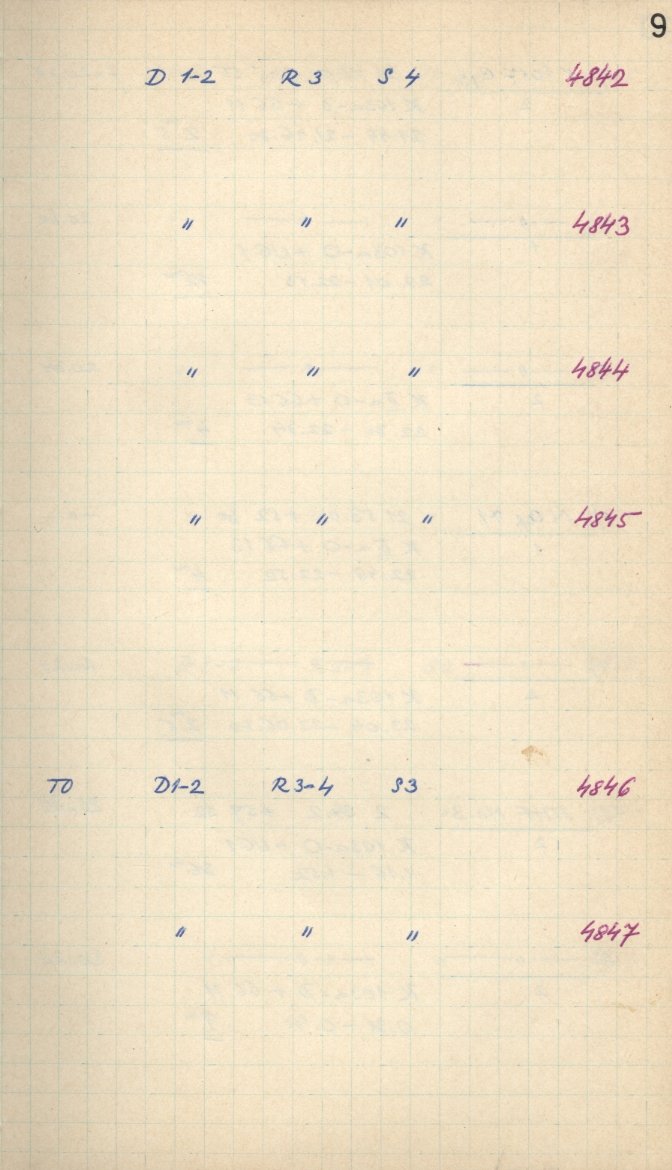 9
D 1-2 R 3 S 4 4842
" " " 4843
" " " 4844
" " " 4845
TO D1-2 R3-4 S3 4846
" " " 4847